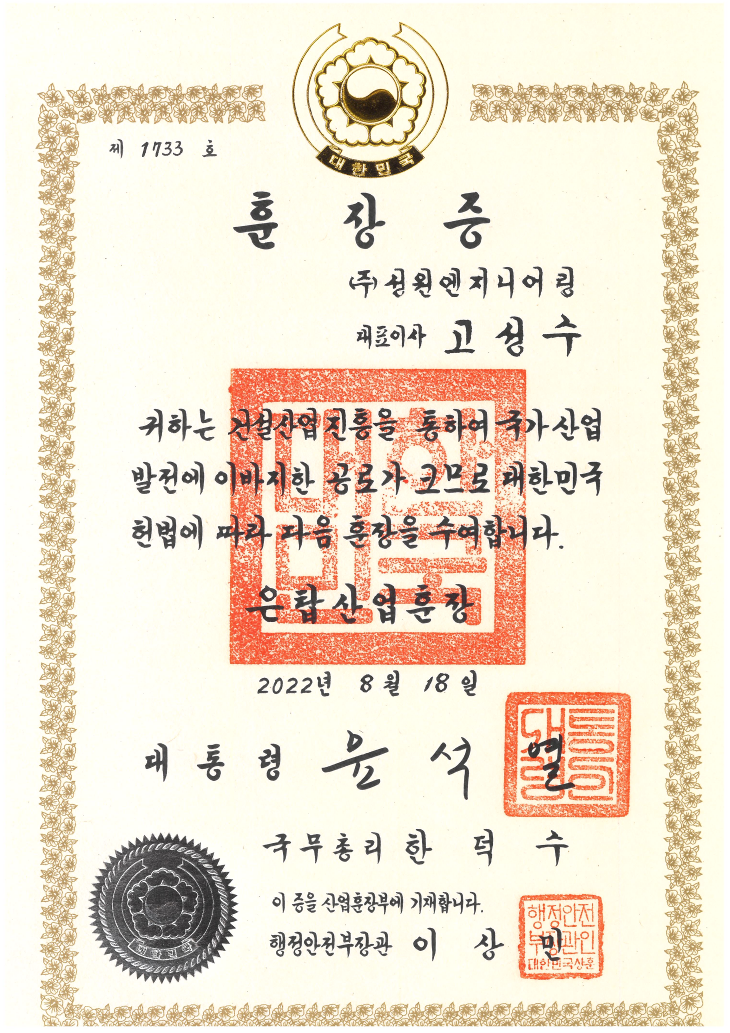 대한민국
제 1733 호
훈 장 증
(주)성원엔지니어링
대표이사 고 성 수
귀하는 건설산업 진흥을 통하여 국가 산업
발전에 이바지한 공로가 크므로 대한민국
헌법에 따라 다음 훈장을 수여합니다.
은탑산업훈장
2022년 8월 18일
대 통 령 윤 석 열
국무총리 한 덕 수
이 증을 산업훈장부에 기재합니다.
행정안전부장관 이 상 민
행정안전
부장관인
대한민국상훈
대한민국